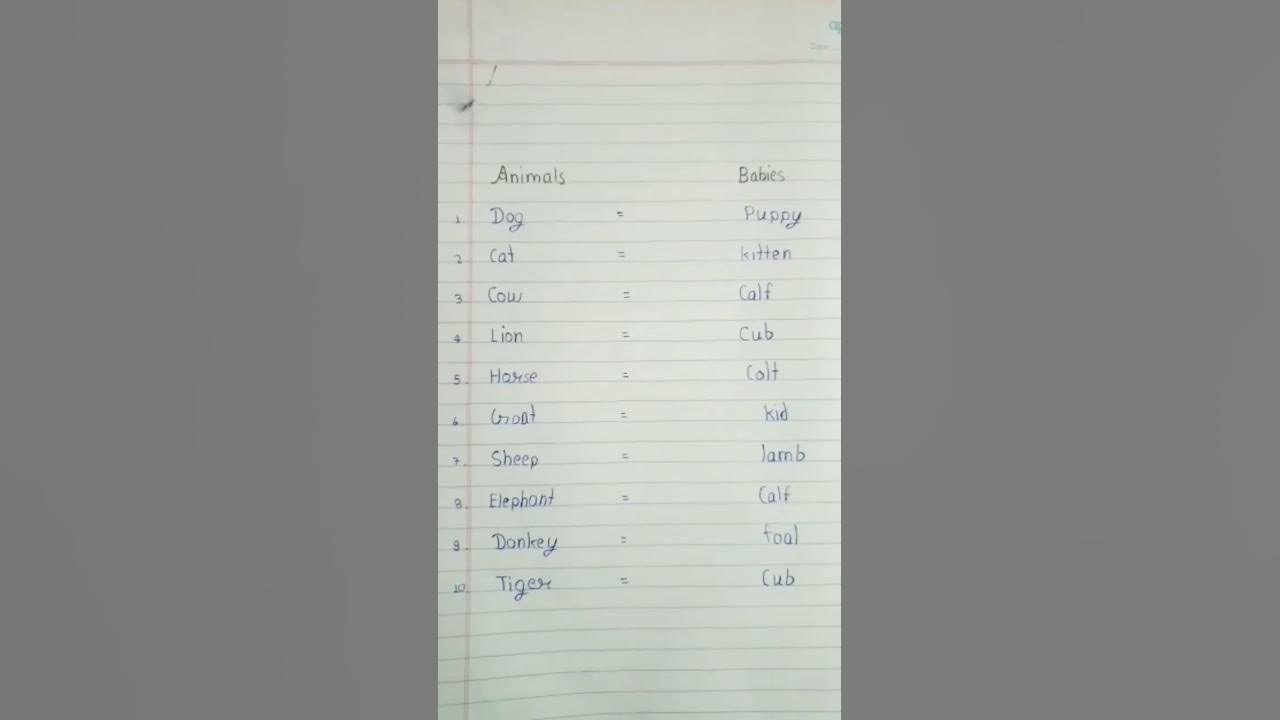 Date
Animals Babies
1 Dog = Puppy
2 Cat = kitten
3 Cow = Calf
4 Lion = Cub
5. Horse = Colt
6. Goat = kid
7. Sheep = lamb
8. Elephant = Calf
9 Donkey = foal
10. Tiger = Cub